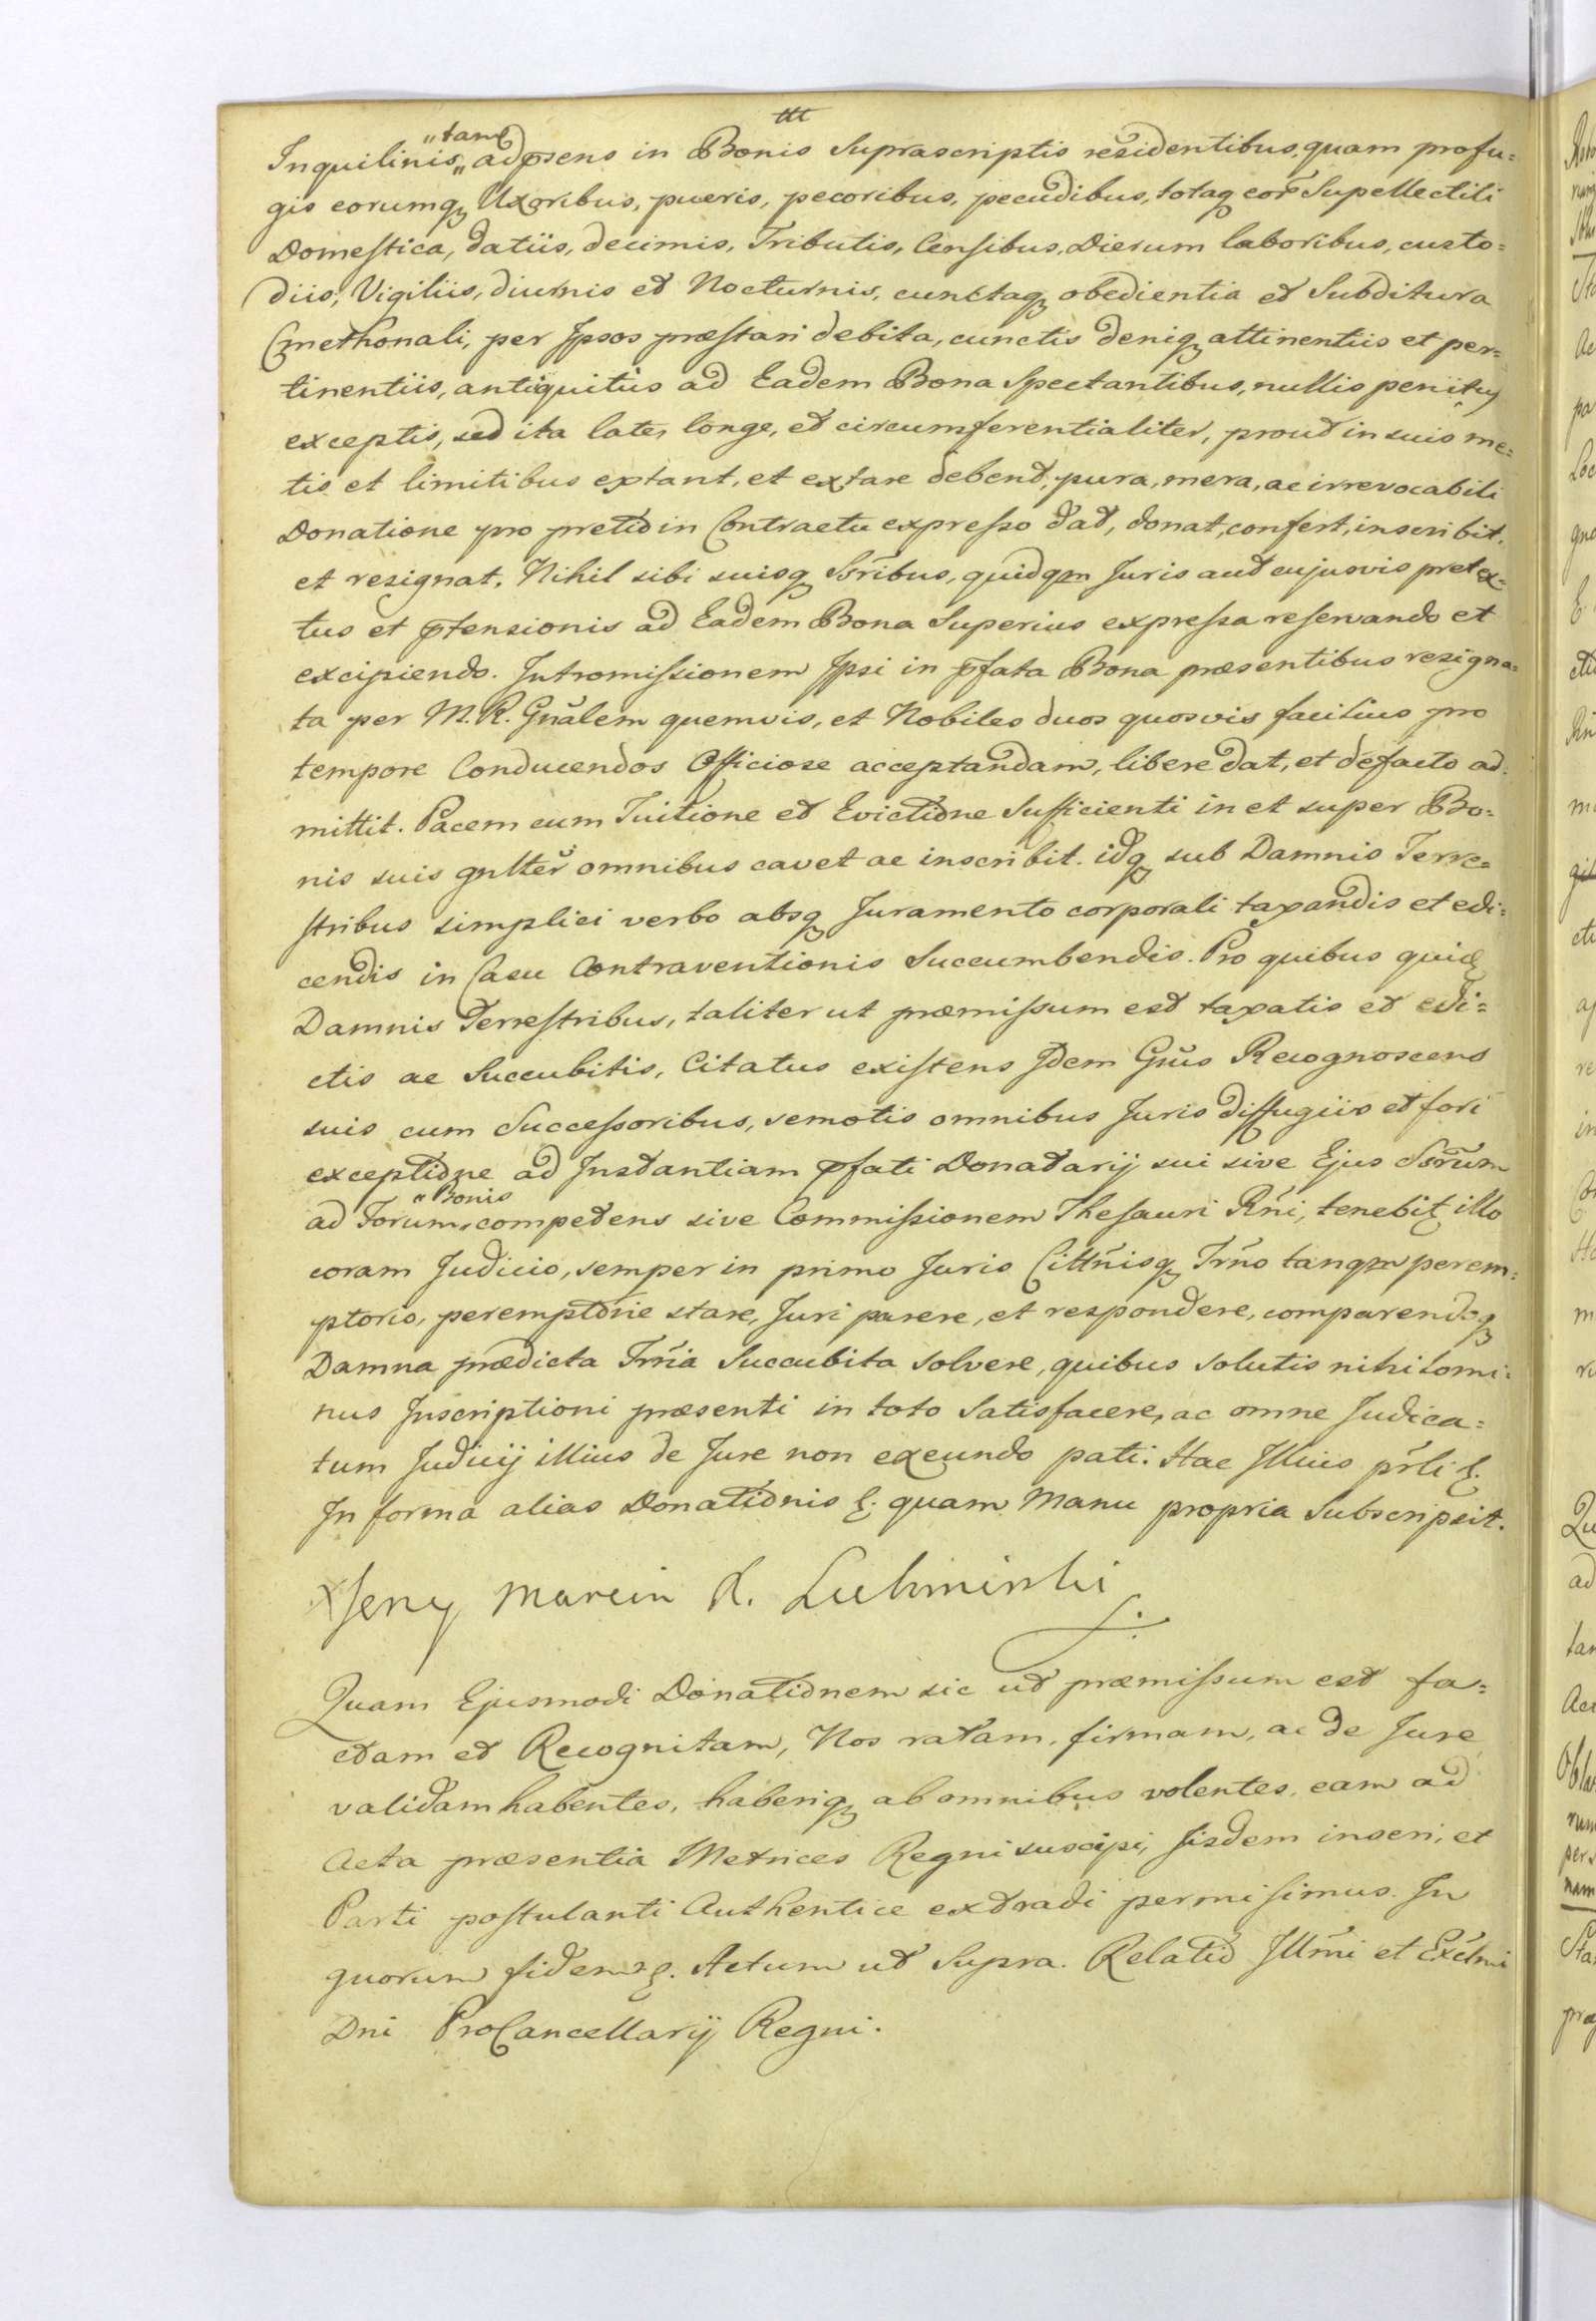 ttt
Inquilinis „tam adpsens in Bonis Suprascriptis residentibus, quam profu=
gis eorumq Uxoribus, pueris, pecoribus, pecudibus, totaq eor Supellectili
Domestica, datiis, decimis, Tributis, Censibus, Dierum laboribus, custo=
diis, Vigiliis, diurnis et Nocturnis, cunctaq obedientia et Subditura
Cmethonali, per Ipsos præstari debita, cunctis deniq attinentiis et per=
tinentiis, antiquitùs ad Eadem Bona Spectantibus, nullis penitus
exceptis, sed ita late, longe, et circumferentialiter, prout in suis me=
tis et limitibus extant, et extare debent, pura, mera, ac irrevocabili
Donatione pro pretio in Contractu expresso dat, donat, confert, inscribit,
et resignat. Nihil sibi suisq Ssribus, quidqm Juris aut cujusvis pretex=
tus et ptensionis ad Eadem Bona Superius expressa reservando et
excipiendo. Intromissionem Ipsi in pfata Bona præsentibus resigna=
ta per M. R. Gnãlem quemvis, et Nobiles duos quosvis facilius pro
tempore Conducendos Officiose acceptandam, libere dat, et defacto ad=
mittit. Pacem cum Tuitione et Evictione Sufficienti in et super Bo=
nis suis gnlter omnibus cavet ac inscribit. idq sub Damnis Terre=
stribus simplici verbo absq Juramento corporali taxandis et edi=
cendis in Casu Contraventionis Succumbendis. Pro quibus quid
Damnis Terrestribus, taliter ut præmissum est taxatis et edi=
ctis ac Succubitis, Citatus existens Idem Gnus Recognoscens
suis cum Successoribus, remotis omnibus Juris diffugiis et fori
exceptione ad Instantiam pfati Donatarij sui sive Ejus Ssrum
ad Forum „Bonis competens sive Commissionem Thesauri Rni, tenebit illo
coram Judicio, semper in primo Juris Cittnisq Trno tanqm perem=
ptorio, peremptorie stare, Juri parere, et respondere, comparendoq
Damna prædicta Trria Succubita solvere, quibus solutis nihilomi=
nus Inscriptioni præsenti in toto Satisfacere, ac omne Judica=
tum Judicij illius de Jure non exeundo pati. Hac Illius prli &.
In forma alias Donationis &. quam Manu propria Subscripsit.
Jerzy Marcin X. Lubomirski
Quam Ejusmodi Donationem sic ut præmissum est fa=
ctam et Recognitam, Nos ratam, firmam, ac de Jure
validam habentes, haberiq ab omnibus volentes, eam ad
Acta præsentia Metrices Regni suscipi, Iisdem inseri, et
Parti postulanti Authentice extradi permisimus. In
quorum fidem &. Actum ut Supra. Relatio Illmi et Excmi
Dni ProCancellarij Regni.